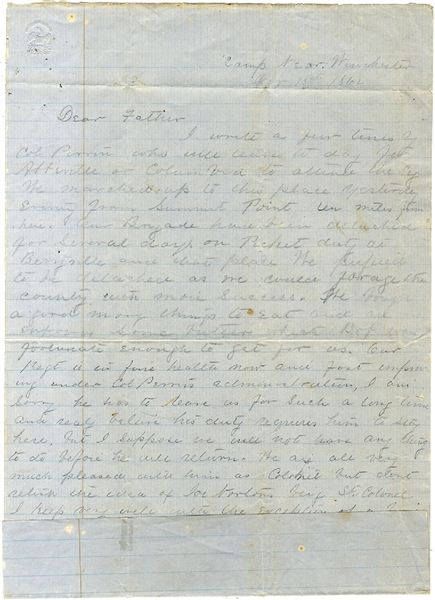 Camp Near Winchester
Nov 10th 186
Dear Father
I write a few lines by
Col Perrin who will leave to day for
Abbeville or Columbia to attend the
We marched up to this place yesterday
Evening from Summit Point ten miles from
here. Our Brigade have been detached
for several days on Picket duty at
Berryville and that place We
to be detached as we could forage the
country with more success. We
a good many things to Eat and
some butter which Bob was
fortunate enough to get for us. Our
Regt is in fine health now and fast improv
ing under Col Perrins administration, I am
sorry he has to leave us for such a long time
and really believe his duty requires him to stay
here. but I suppose we will not have any thing
to do before he will return. We are all very
much pleased with him as Colonel but dont
relish the idea of Joe Nortons being Lt. Colonel
I keep very well with the exception of a